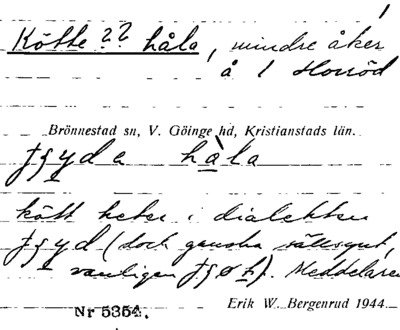 Kötte ?? håla, mindre åker
å 1 Horröd
Brönnestad sn, V. Göinge hd, Kristianstads län.
tʃyda håla
kött heter i dialekten
tʃyd (dock ganska sällsynt,
vanligen tʃøt). Meddelaren
Erik W. Bergenrud 1944
Nr 5354.